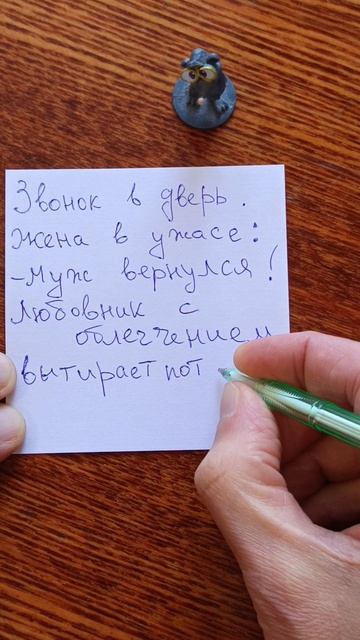 Звонок в дверь.
Жена в ужасе:
-Муж вернулся!
Любовник с
облегчением
вытирает пот